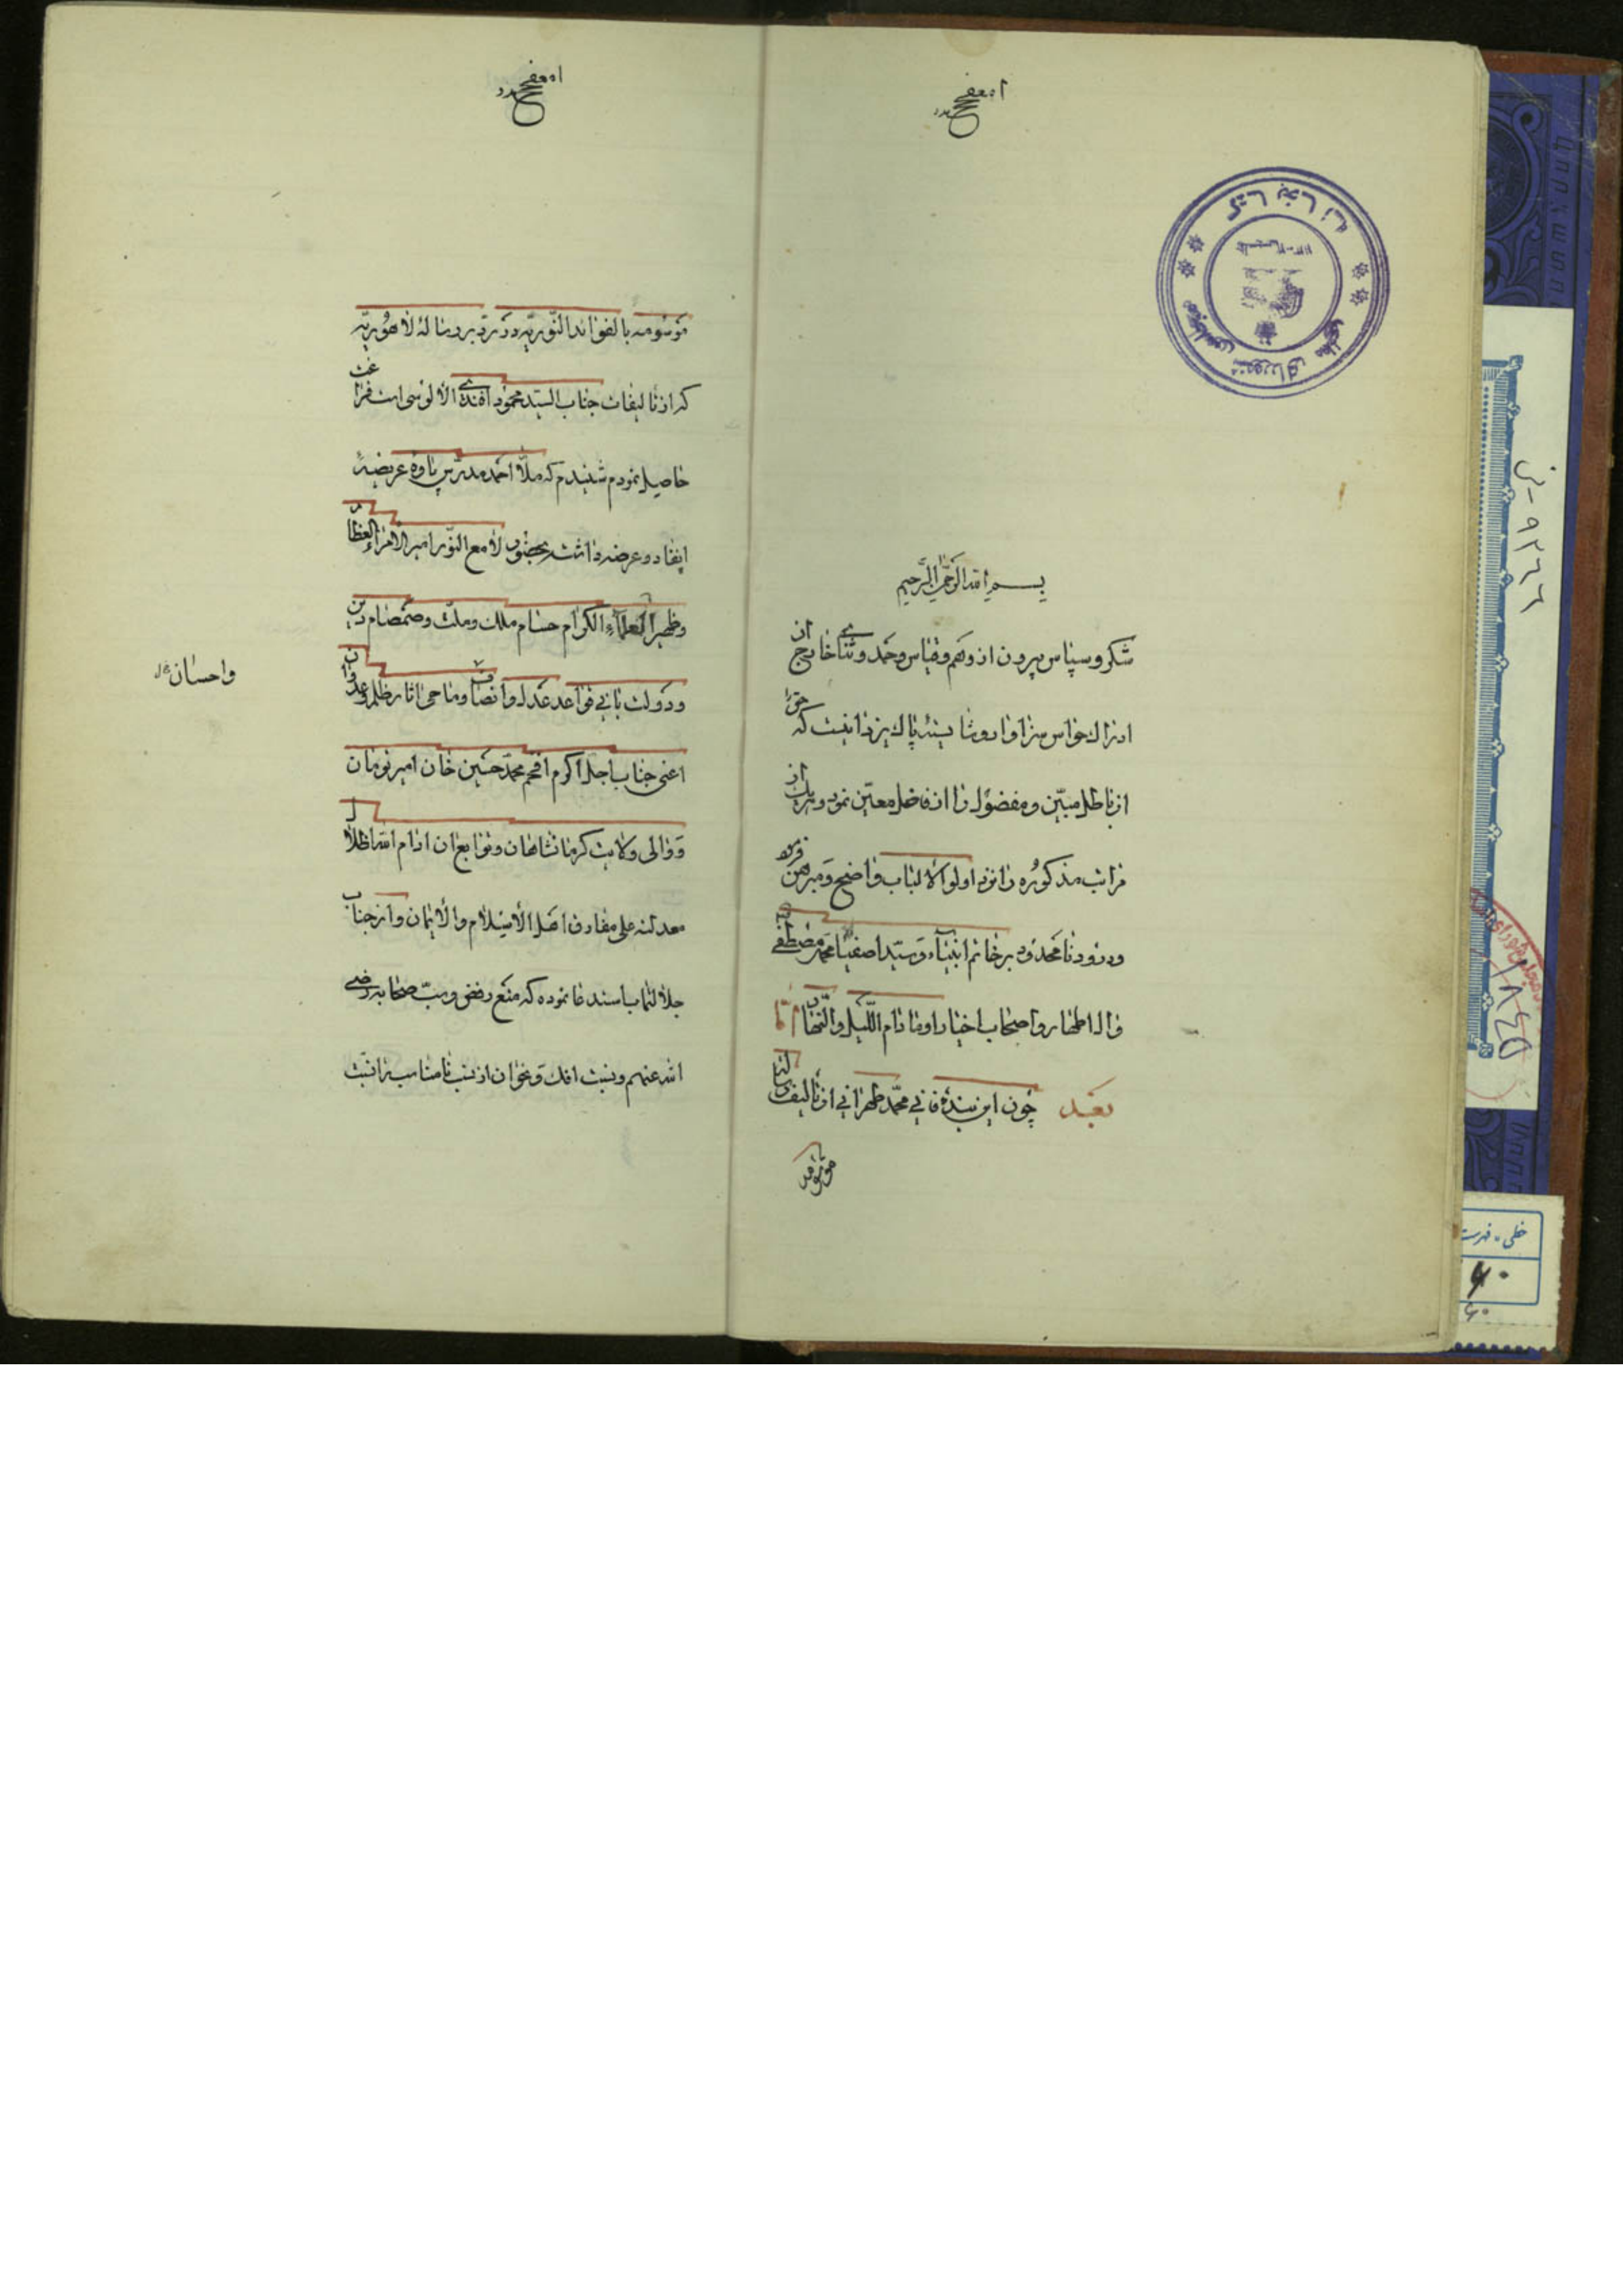 بسم الله الرحمن الرحیم
شکر و سپاس بیرون از وهم و قیاس و حمد و ثنای خارج از
ادراك حواس سزاوار و شایسته پاك یزدانیست که حق را
از باطل مبین و مفضول را از فاضل معین نمود و هر یك از
مراتب مذکوره را نزد اولو الالباب واضح و مبرهن فرمود
و درود نامحدود بر خاتم انبیاء و سید اصفیا محمد مصطفی
و آل اطهار و اصحاب اخیار او مادام اللیل والنهار اما
بعد چون این بنده فانی محمد طهرانی از تألیف رساله
موسومه
موسومه بالفوائد النوریه در رد بر رساله لاهوریه
که از تالیفات جناب السید محمود افندی الالوسی است فراغت
حاصل نمودم شنیدم که ملا احمد مدرس پاوه عریضه
ایفاد و عرضه داشت بحضور لامع النور امیر الامراء العظام
و ظهیر العلماء الکرام حسام ملك و ملت و صمصام دین
و دولت بانی قواعد عدل و انصاف و ماحی اثار ظلم و عدوان
واحسان
اعنی جناب اجل اکرم افخم محمد حسین خان امیر تومان
و والی ولایت کرمانشاهان و توابع ان ادام الله اظلال
معدلته علی مفارق اهل الأسلام والأیمان و از جناب
جلالتماب استدعا نموده که منع رفض و سب صحابه رضی
الله عنهم و نسبت افك و نحو ان از نسب نامناسب را نسبت
کتابخانه
مجلس شورای ملی
۹۳۶۶
خطی - فهرست